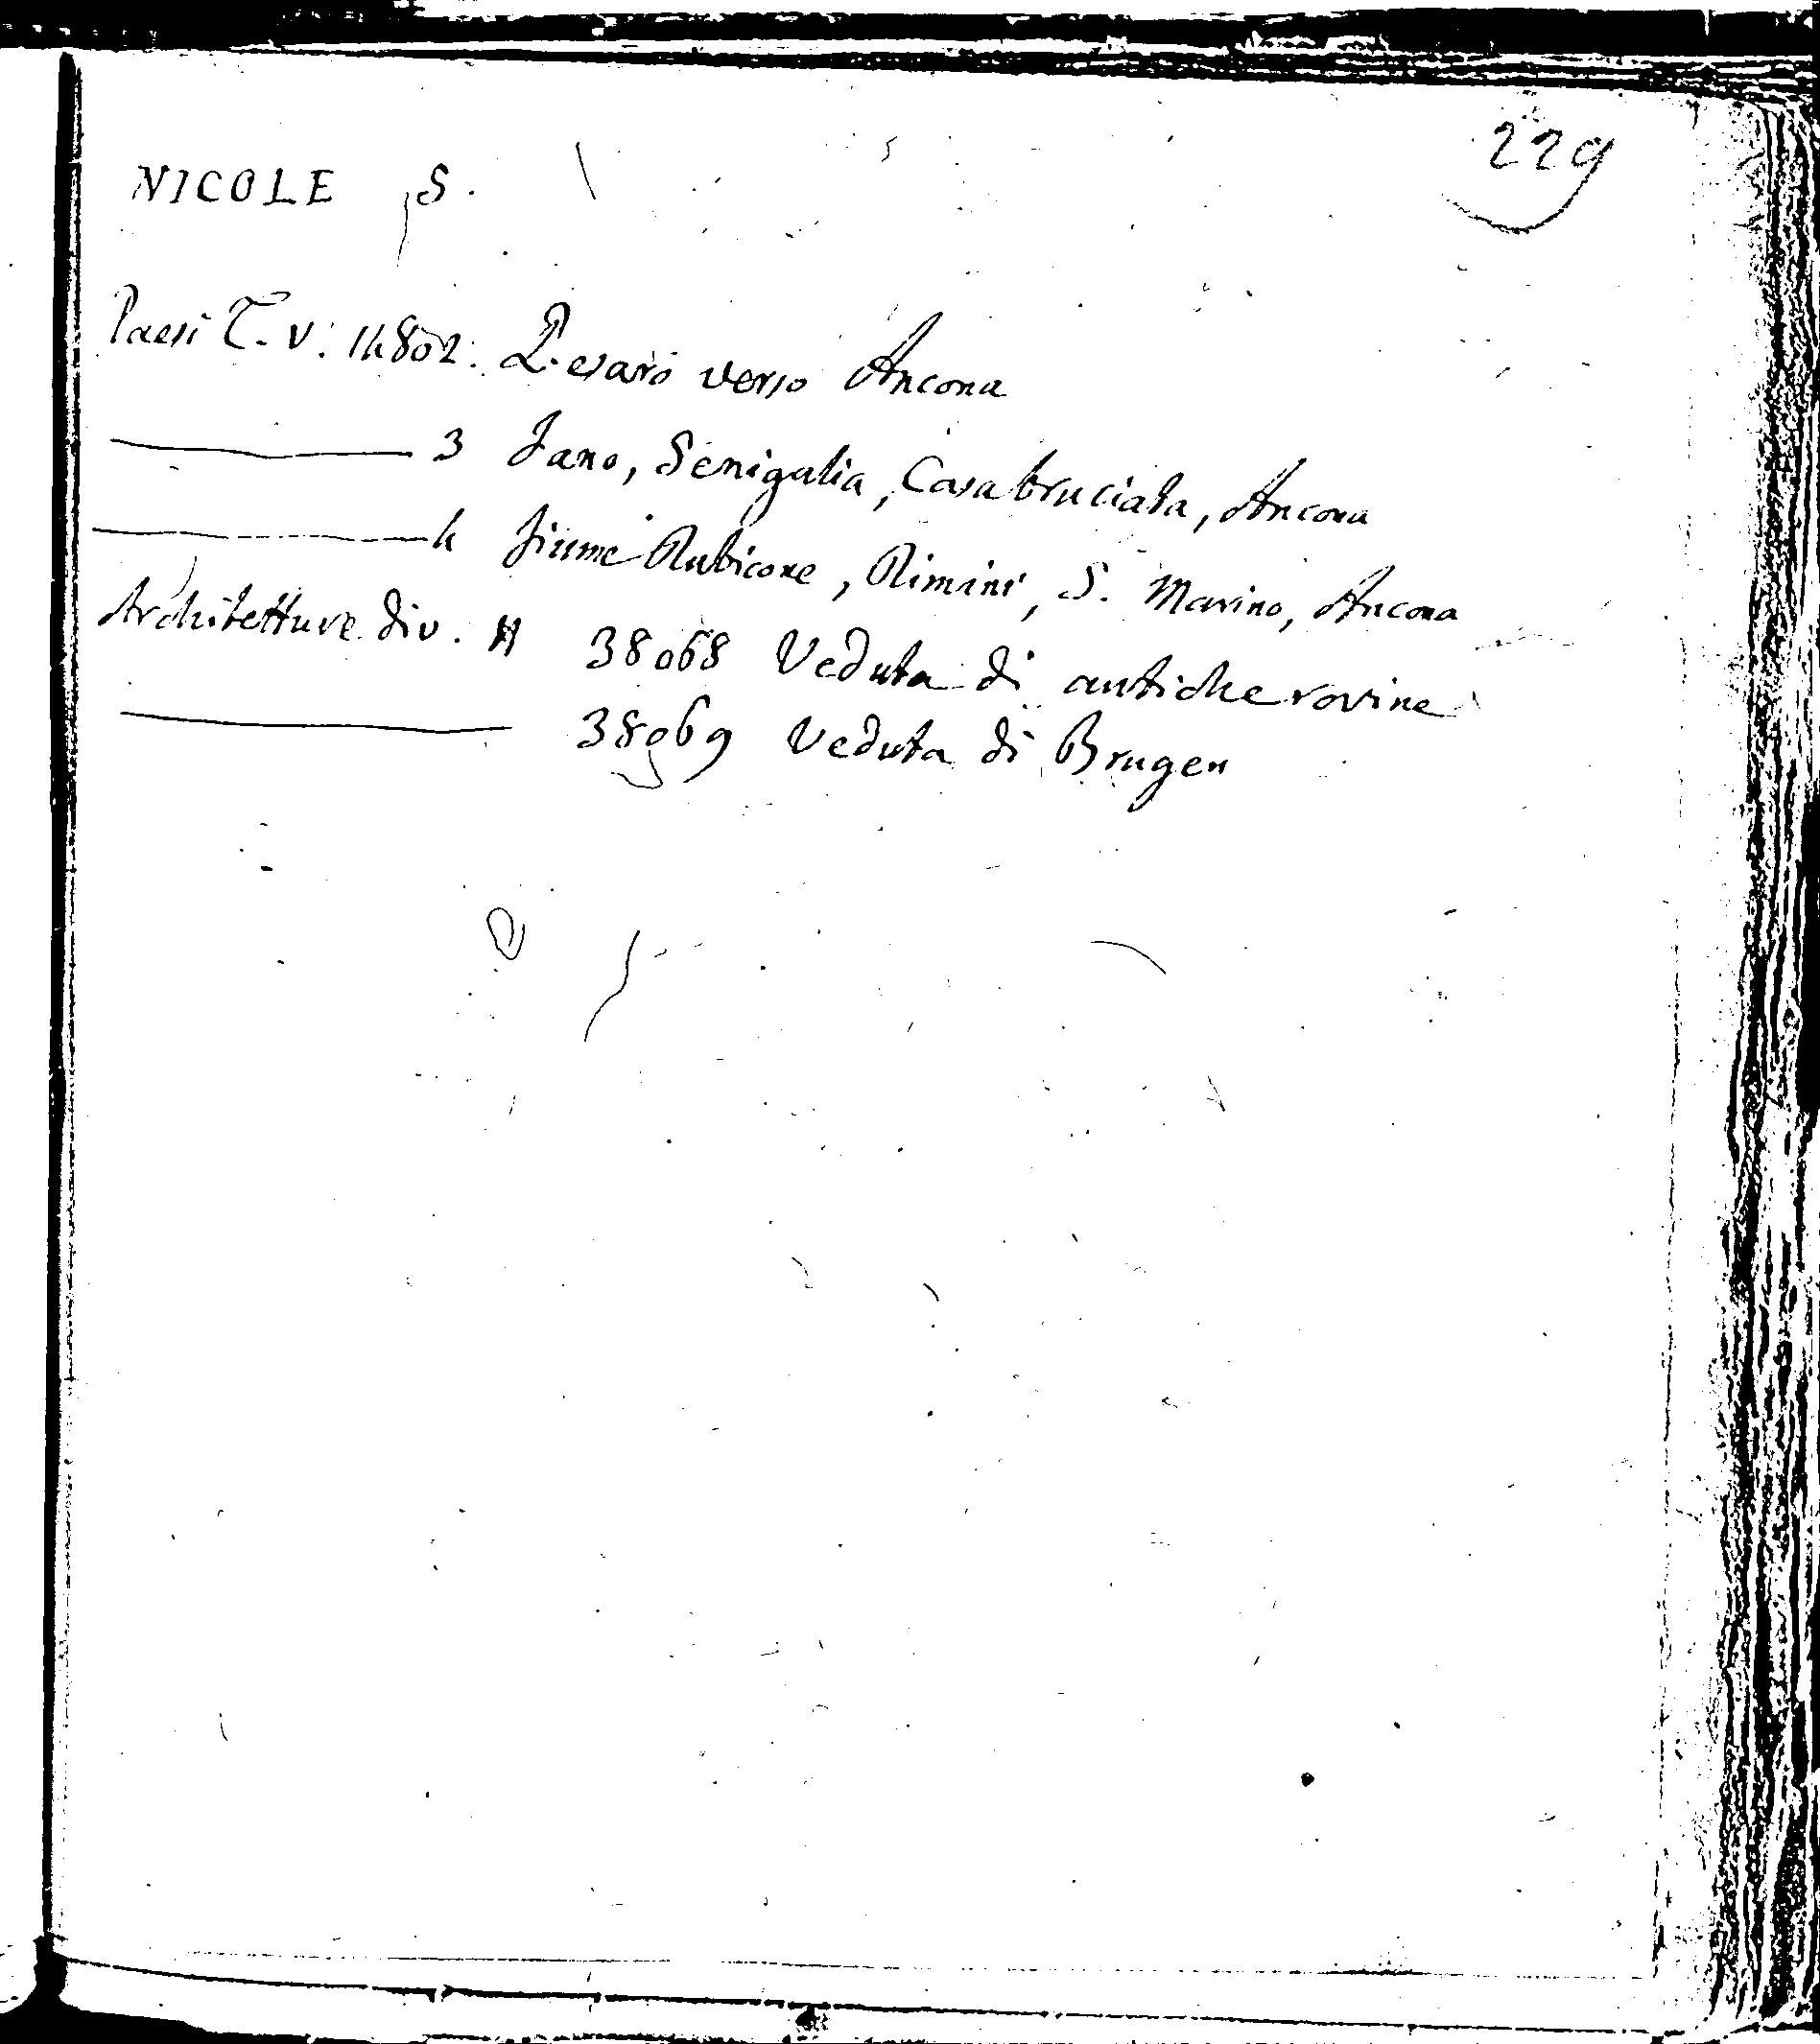 229
NICOLE S.
Paesi T. V. 14802. Pesaro verso Ancona
3 Fano, Senigalia, Casabruciata, Ancona
4 Fiume Rubicone, Rimini, S. Marino, Ancona
Architetture div. 38068 Veduta di antiche rovine
38069 Veduta di Brugen